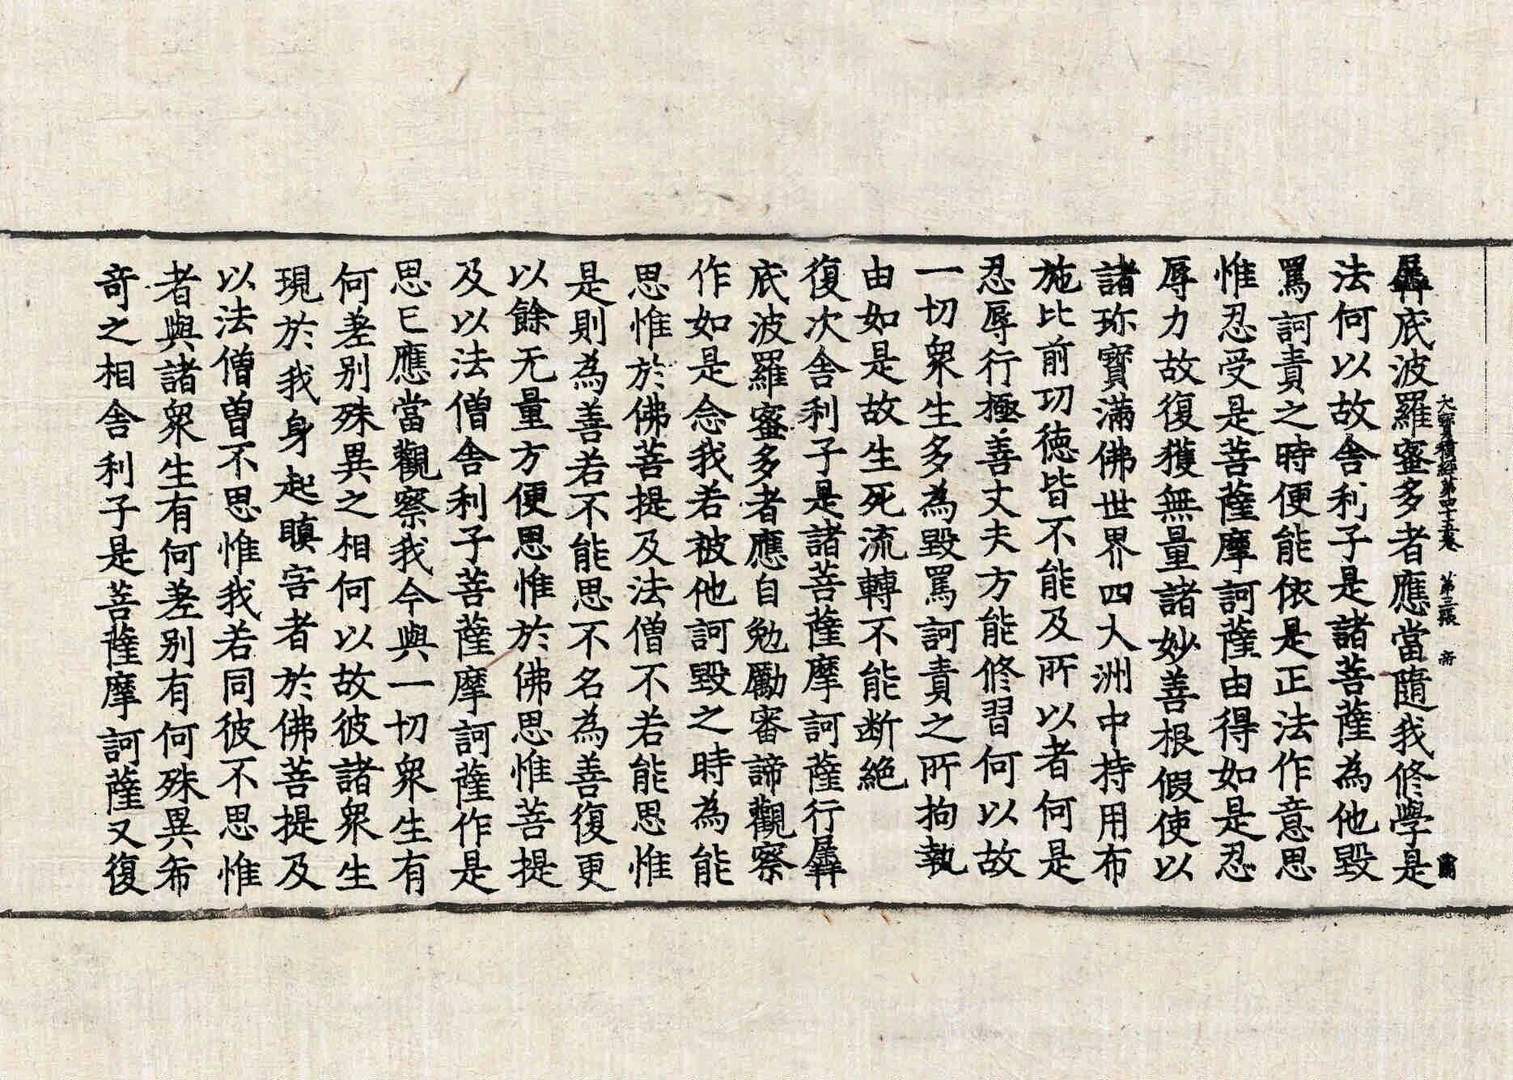 大寶積經第四十五卷 第三張 帝
羼底波羅蜜多者應當隨我修學是
法何以故舍利子是諸菩薩為他毀
罵訶責之時便能依是正法作意思
惟忍受是菩薩摩訶薩由得如是忍
辱力故復獲無量諸妙善根假使以
諸珎寶滿佛世界四大洲中持用布
施比前功德皆不能及所以者何是
忍辱行極善丈夫方能修習何以故
一切衆生多為毀罵訶責之所拘執
由如是故生死流轉不能断絶
復次舍利子是諸菩薩摩訶薩行羼
底波羅蜜多者應自勉勵審諦觀察
作如是念我若被他訶毀之時為能
思惟於佛菩提及法僧不若能思惟
是則為善若不能思不名為善復更
以餘无量方便思惟於佛思惟菩提
及以法僧舍利子菩薩摩訶薩作是
思已應當觀察我今與一切衆生有
何差別殊異之相何以故彼諸衆生
現於我身起瞋害者於佛菩提及
以法僧曽不思惟我若同彼不思惟
者與諸衆生有何差別有何殊異希
竒之相舍利子是菩薩摩訶薩又復